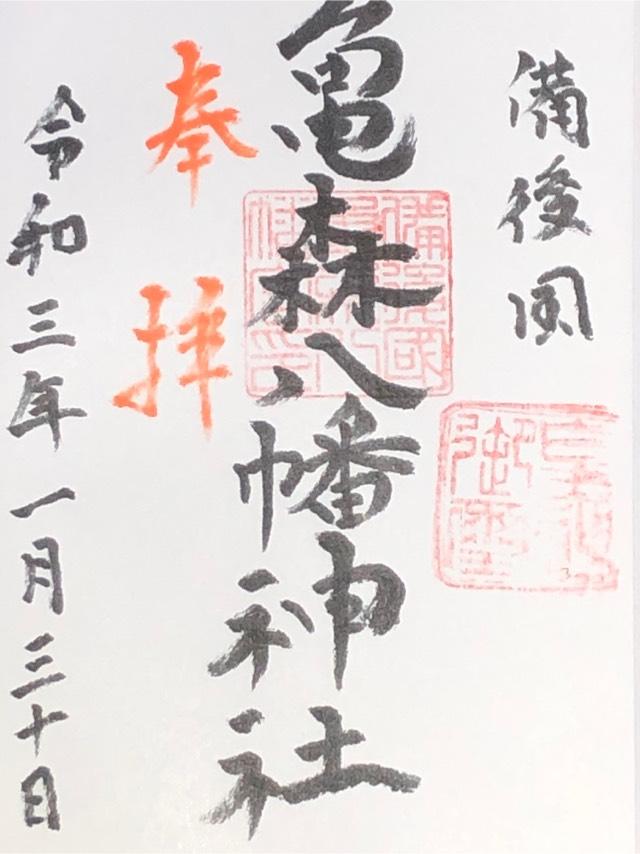 備後国
亀森八幡神社
奉拝
令和三年一月三十日